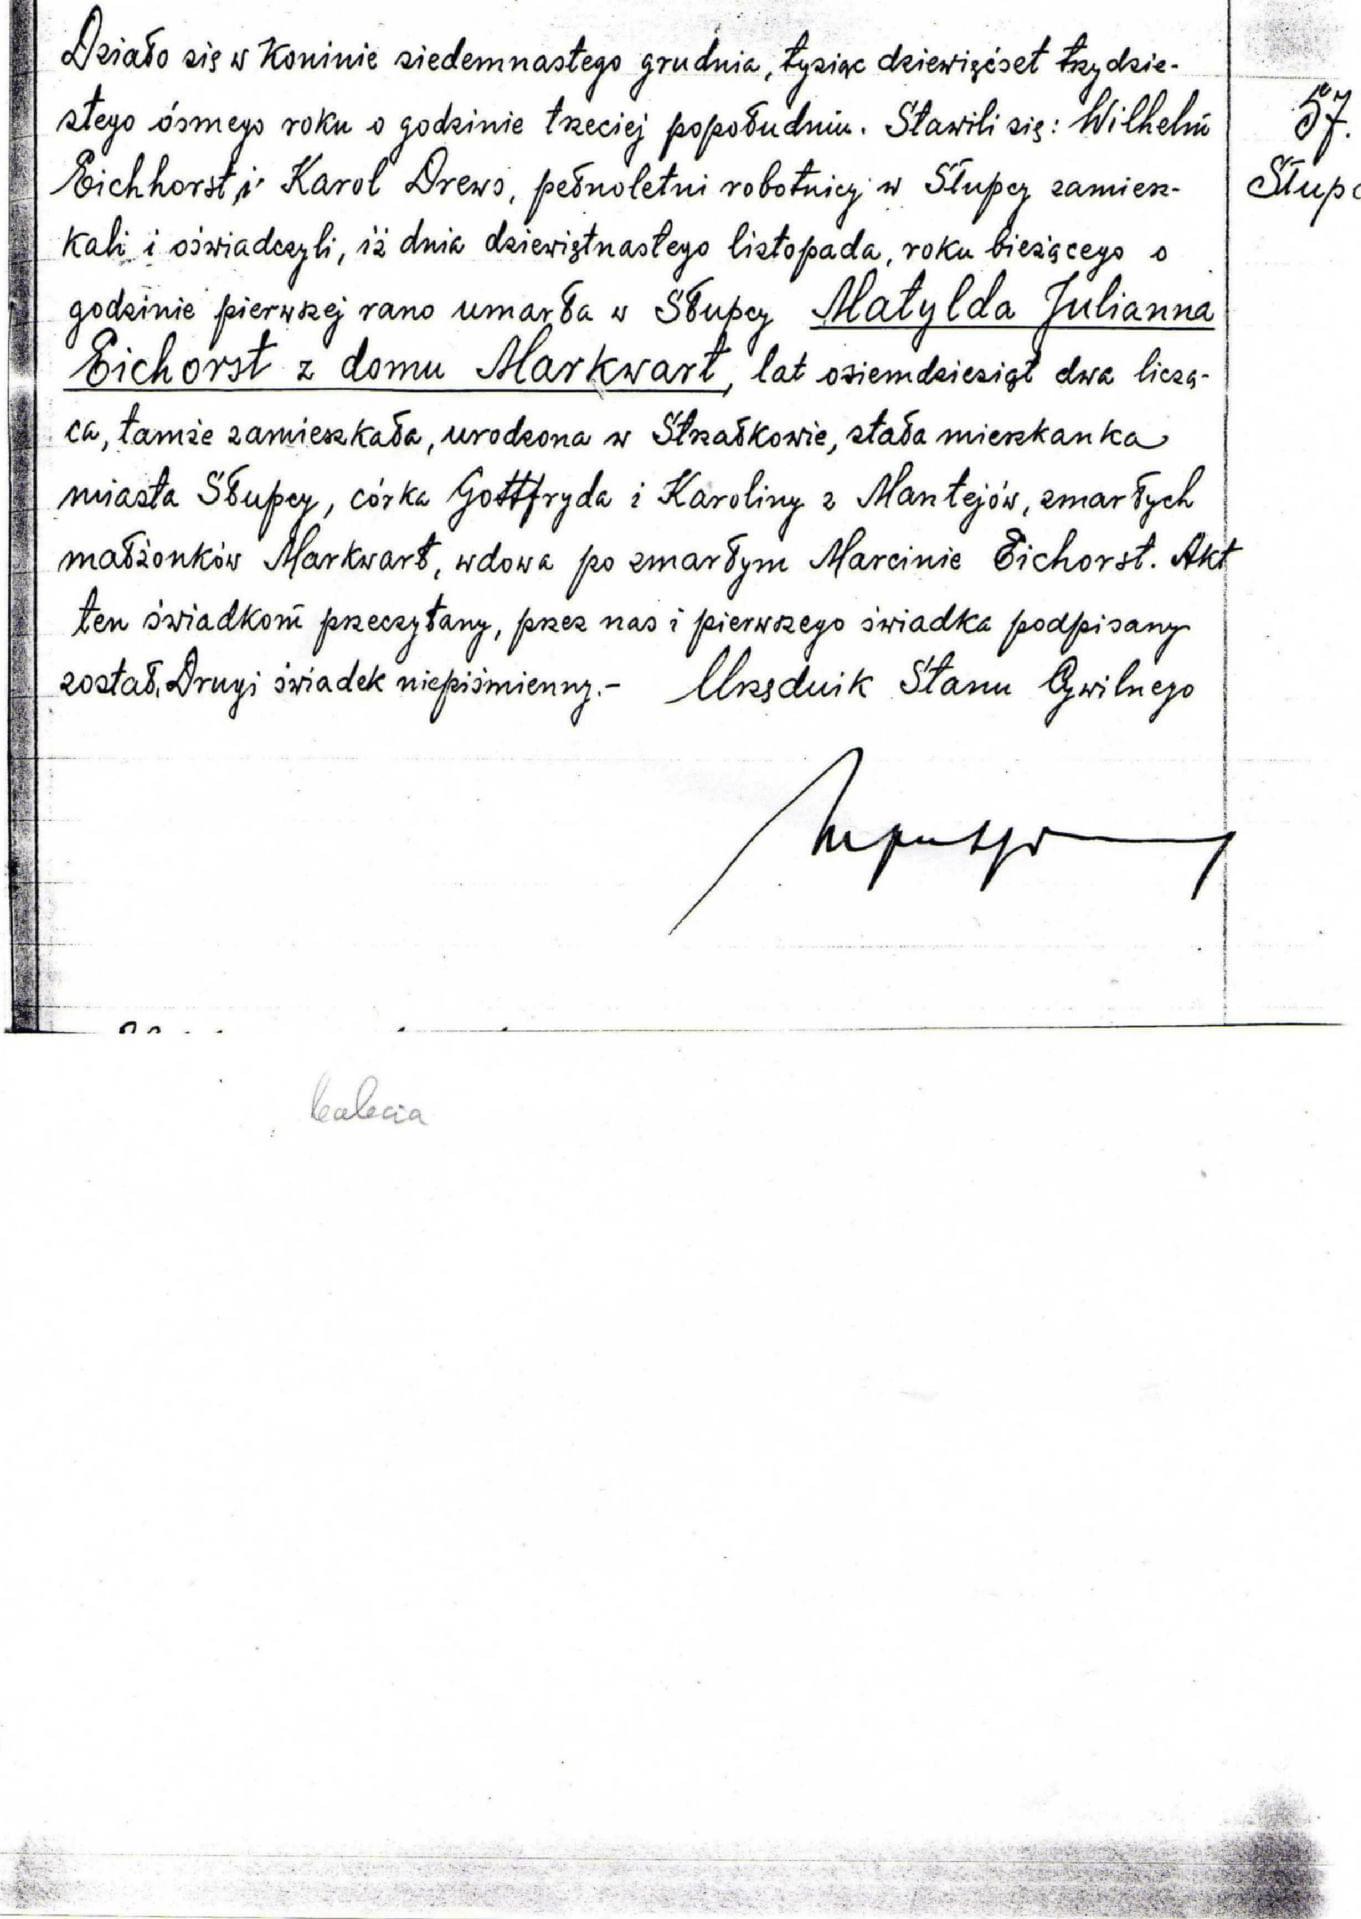 Działo się w Koninie siedemnastego grudnia, tysiąc dziewięćset trzydzie-
stego ósmego roku o godzinie trzeciej popołudniu. Stawili się: Wilhelm
Eichhorst i Karol Drews, pełnoletni robotnicy w Słupcy zamiesz-
kali i oświadczyli, iż dnia dziewiętnastego listopada, roku bieżącego o
godzinie pierwszej rano umarła w Słupcy Matylda Julianna
Eichorst z domu Markwart, lat osiemdziesiąt dwa liczą-
ca, tamże zamieszkała, urodzona w Strzałkowie, stała mieszkanka
miasta Słupcy, córka Gottfryda i Karoliny z Mantejów, zmarłych
małżonków Markwart, wdowa po zmarłym Marcinie Eichorst. Akt
ten świadkom przeczytany, przez nas i pierwszego świadka podpisany
został. Drugi świadek niepiśmienny.-
Urzędnik Stanu Cywilnego
57.
Słupc